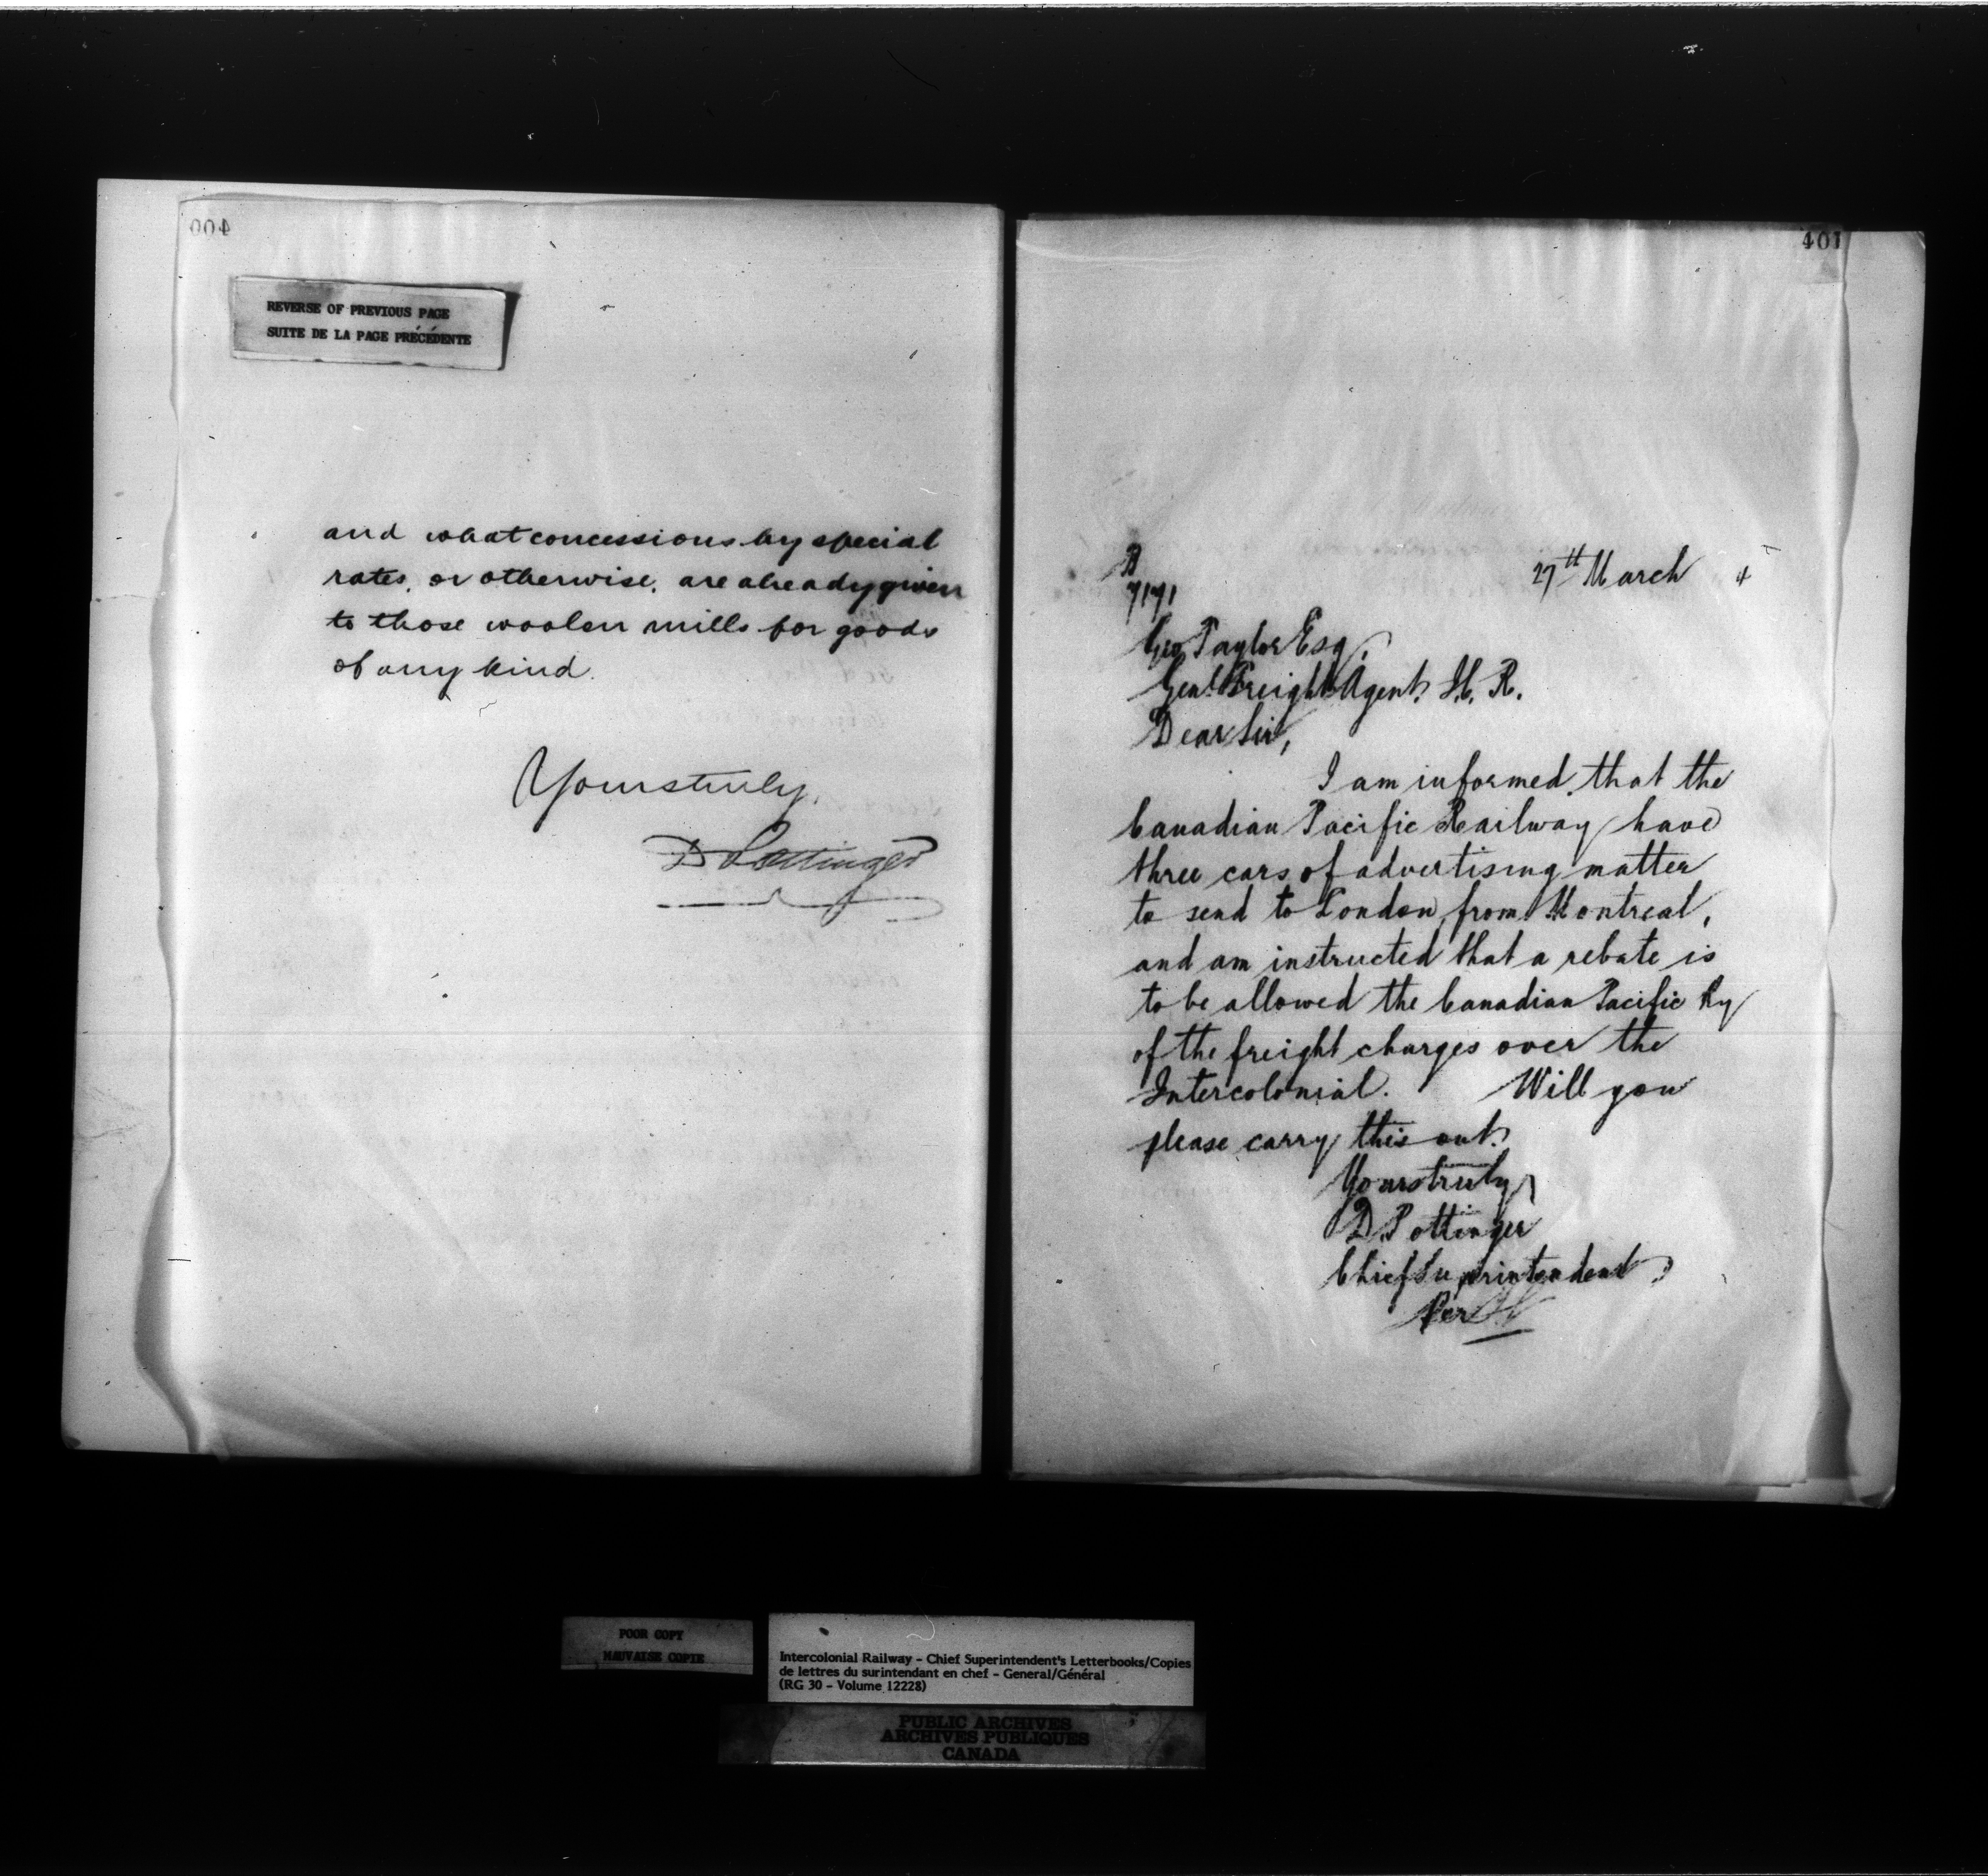 400
REVERSE OF PREVIOUS PAGE
SUITE DE LA PAGE PRÉCÉDENTE
and what concessions by special
rates, or otherwise, are already given
to those woolen mills for goods
of any kind.
Yours truly,
D Pottinger
401
27th March 4
7171
Geo Taylor Esq,
Genl Freight Agent, I.C.R.
Dear Sir,
I am informed that the
Canadian Pacific Railway have
three cars of advertising matter
to send to London, from Montreal,
and am instructed that a rebate is
to be allowed the Canadian Pacific Ry
of the freight charges over the
Intercolonial. Will you
please carry this out.
Yours truly,
D. Pottinger
Chief Superintendent
Per
POOR COPY
MAUVAISE COPIE
Intercolonial Railway - Chief Superintendent's Letterbooks/Copies
de lettres du surintendant en chef - General/Général
(RG 30 - Volume 12228)
PUBLIC ARCHIVES
ARCHIVES PUBLIQUES
CANADA